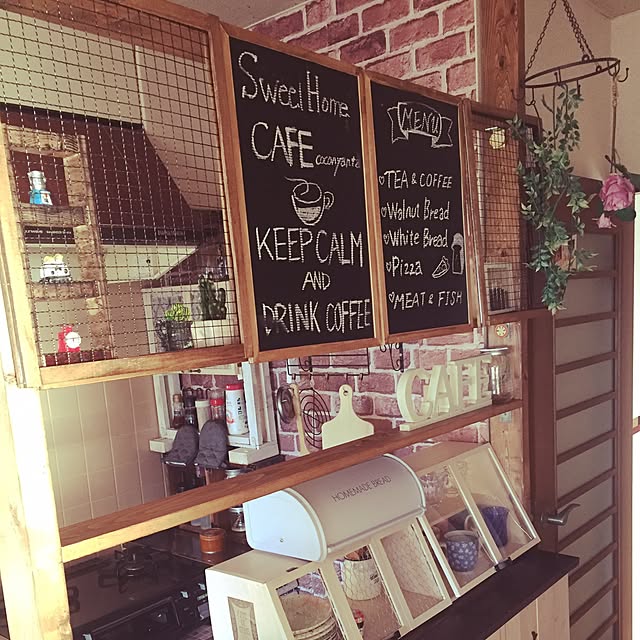 Sweet Home
CAFE
coconyanta
KEEP CALM
AND
DRINK COFFEE
MENU
TEA & COFFEE
Walnut Bread
White Bread
Pizza
MEAT & FISH
CAFE
HOMEMADE BREAD